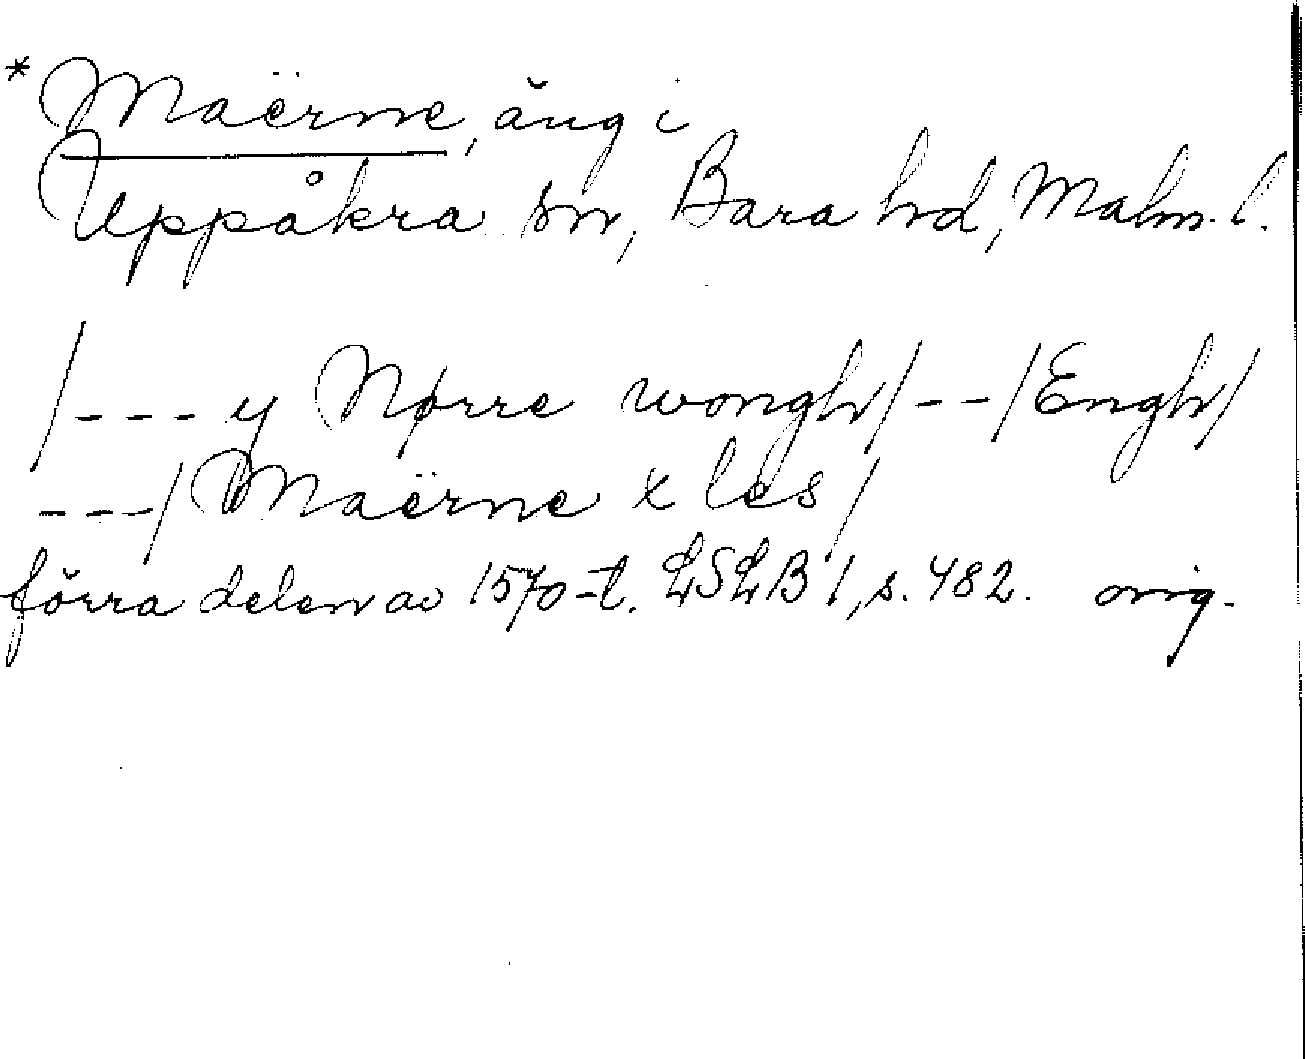 * Maërne, äng i
Uppåkra sn, Bara hd, Malm. l.
/--- y Nørre wongh/--/Engh/
---/Maërne x les/
förra delen av 1570-t. LSLB 1, s. 482. orig.